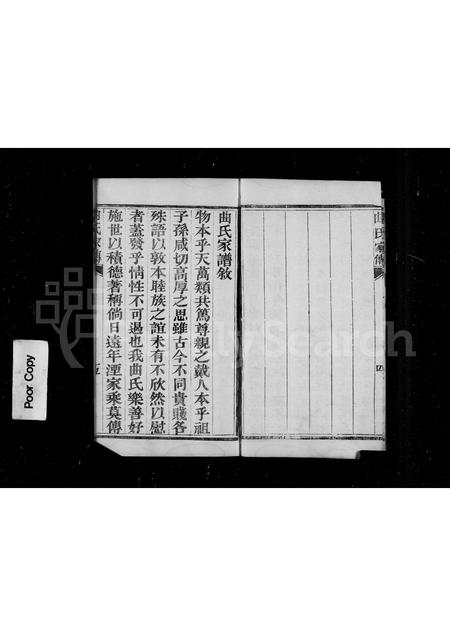 曲氏家傳
四
曲氏家譜敘
物本乎天萬類共篤尊親之戴人本乎祖
子孫咸切高厚之思雖古今不同貴賤各
殊語以敦本睦族之誼未有不欣然以慰
者蓋發乎情性不可遏也我曲氏樂善好
施世以積德著稱倘日遠年湮家乘莫傳
曲氏家傳
五
Poor Copy
FamilySearch